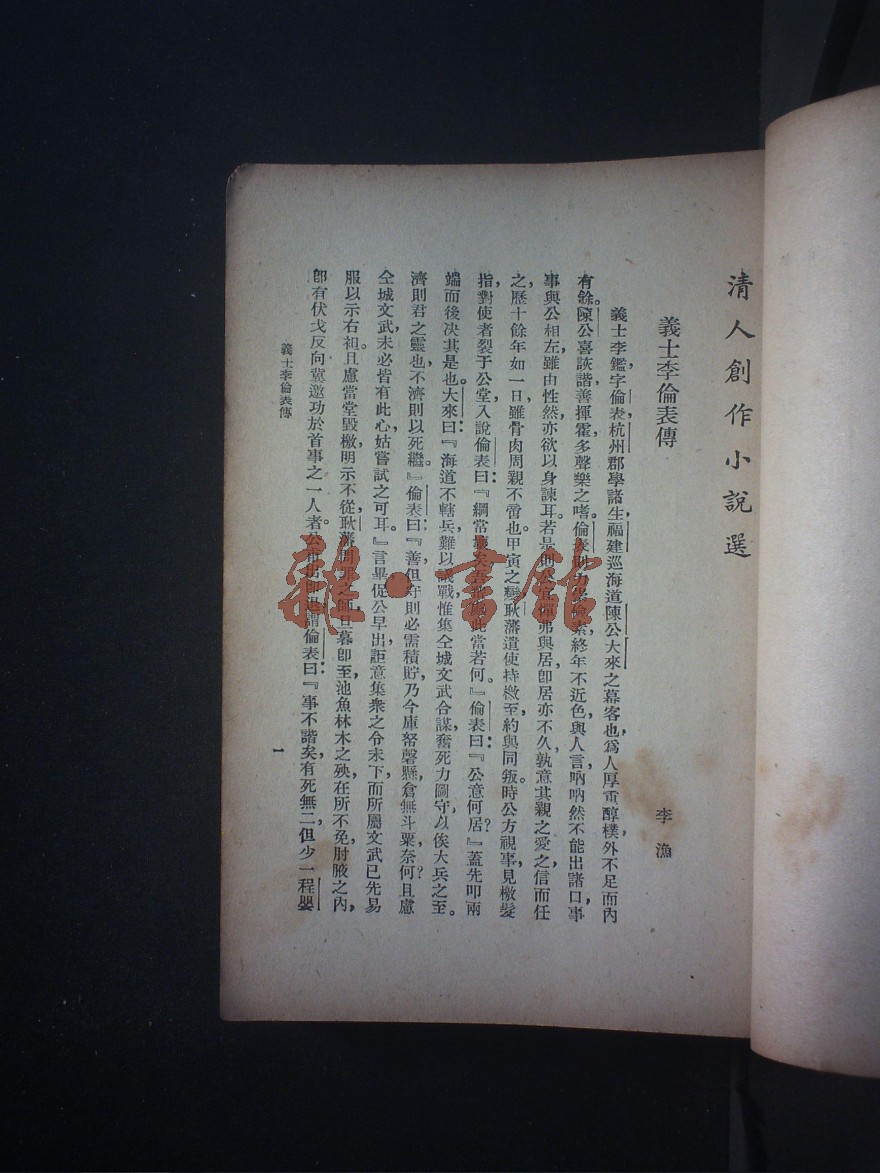 清人創作小說選
義士李倫表傳
李漁
義士李鑑，字倫表，杭州郡學諸生，福建巡海道陳公大來之幕客也，爲人厚重醇樸，外不足而內
有餘。陳公喜詼諧，善揮霍，多聲樂之嗜。倫表則力崇儉素，終年不近色，與人言，吶吶然不能出諸口，事
事與公相左，雖由性然，亦欲以身諫耳。若是則弗與居，卽居亦不久，孰意其親之愛之，信而任
之，歷十餘年如一日，雖骨肉周親不啻也。甲寅之變，耿藩遣使持檄至，約與同叛。時公方視事，見檄髮
指，對使者裂于公堂，入說倫表曰：『綱常壞矣，當若何。』倫表曰：『公意何居？』蓋先叩兩
端而後决其是也。大來曰：『海道不轄兵，難以議戰，惟集仝城文武，合謀奮死力圖守，以俟大兵之至。
濟則君之靈也，不濟則以死繼。』倫表曰：『善，但守則必需積貯，乃今庫帑磬懸，倉無斗粟，奈何？且慮
仝城文武，未必皆有此心，姑嘗試之可耳。』言畢，促公早出，詎意集衆之令未下，而所屬文武，已先易
服以示右袒。且慮當堂毀檄，明示不從，耿藩問罪之師，旦暮卽至，池魚林木之殃，在所不免，肘腋之內，
卽有伏戈反向，冀邀功於首事之一人者。公謂倫表曰：『事不諧矣，有死無二，但少一程嬰
義士李倫表傳
一
雜·書館